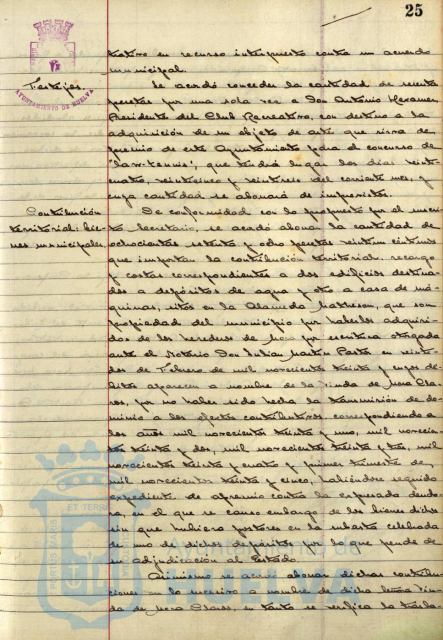 25
AYUNTAMIENTO DE HUELVA
trativo en recurso interpuesto contra un acuerdo
municipal.
Festejos.
Se acordó conceder la cantidad de
pesetas por una sola vez a Don Antonio
Presidente del Club Recreativo, con destino a la
adquisición de un objeto de arte que sirva de
premio de este Ayuntamiento para el concurso de
"lawn-tennis", que tendrá lugar los días veinti
cuatro, veinticinco y veintiseis del corriente mes, y
cuya cantidad se abonará de imprevistos.
Contribución
territorial: bie-
nes municipales.
De conformidad con lo propuesto por el infrascri
to Secretario, se acordó abonar la cantidad de
ochocientas setenta y ocho pesetas veintiun céntimos
que importan la contribución territorial, recargo
y costas correspondientes a dos edificios destina
dos a depósitos de agua y otro a casa de má-
quinas, sitos en la Alameda Mackheson, que son
propiedad del municipio por haberlos adquiri
dos de los herederos de Mora por escritura otorgada
ante el Notario Don Julian Martin Pastor en veinti
dos de Febrero de mil novecientos treinta y cuyos dé
bitos aparecen a nombre de la Viuda de Mora Cla
ros, por no haber sido hecha la transmisión de do-
minio a los efectos contributivos correspondiendo a
los años mil novecientos treinta y uno, mil novecien
tos treinta y dos, mil novecientos treinta y tres, mil
novecientos treinta y cuatro y primer trimestre de
mil novecientos treinta y cinco, habiéndose seguido
expediente de apremio contra la expresada deudo
ra, en el que se causó embargo de los bienes dichos
sin que hubiera postores en la subasta celebrada
de uno de dichos depósitos por lo que pende de
su adjudicación al Estado.
Asimismo se acordó abonar dichas contribu
ciones en lo sucesivo a nombre de dicha Señora Viu
da de Mora Claros, en tanto se verifica la trasla
PORTUS MARIS ET TERRAE
Ayuntamiento de